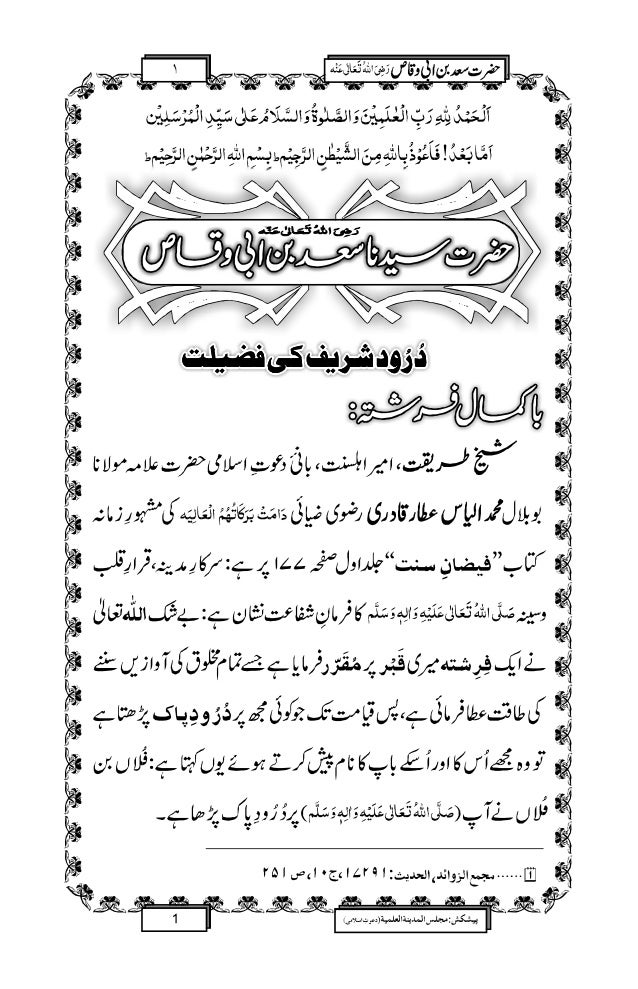 حضرت سعد بن ابی وقاص رَضِیَ اللّٰہُ تَعَالٰی عَنْہ
۱
اَلْحَمْدُ لِلّٰہِ رَبِّ الْعٰلَمِیْنَ وَالصَّلٰوۃُ وَالسَّلَامُ عَلٰی سَیِّدِ الْمُرْسَلِیْن
اَمَّا بَعْدُ! فَاَعُوْذُ بِاللّٰہِ مِنَ الشَّیْطٰنِ الرَّجِیْمِ ؕ بِسْمِ اللّٰہِ الرَّحْمٰنِ الرَّحِیْمِ ؕ
رَضِیَ اللّٰہُ تَعَالٰی عَنْہ
حضرت سیدنا سعد بن ابی وقاص
دُرُود شریف کی فضیلت
باکمال فرشتہ:
شیخ طریقت، امیر اہلسنت، بانیٔ دعوتِ اسلامی حضرت علامہ مولانا
بو بلال محمد الیاس عطار قادری رضوی ضیائی دَامَتْ بَرَکَاتُہُمُ الْعَالِیَہ کی مشہورِ زمانہ
کتاب ’’فیضانِ سنت‘‘ جلد اول صفحہ ۱۷۷ پر ہے: سرکارِ مدینہ، قرارِ قلب
وسینہ صَلَّی اللّٰہُ تَعَالٰی عَلَیْہِ وَاٰلِہٖ وَسَلَّم کا فرمانِ شفاعت نشان ہے: بے شک اللّٰہ تعالٰی
نے ایک فِرِشتہ میری قَبْر پر مُقَرَّر فرمایا ہے جسے تمام مخلوق کی آوازیں سننے
کی طاقت عطا فرمائی ہے، پس قیامت تک جو کوئی مجھ پر دُرُودِ پاک پڑھتا ہے
تو وہ مجھے اُس کا اور اُسکے باپ کا نام پیش کرتے ہوئے یوں کہتا ہے: فُلاں بن
فُلاں نے آپ (صَلَّی اللّٰہُ تَعَالٰی عَلَیْہِ وَاٰلِہٖ وَسَلَّم) پر دُرُودِ پاک پڑھا ہے۔
۱ ......مجمع الزوائد، الحدیث: ۱۷۲۹۱، ج۱۰، ص۲۵۱
پیشکش: مجلس المدینۃ العلمیۃ (دعوتِ اسلامی)
1